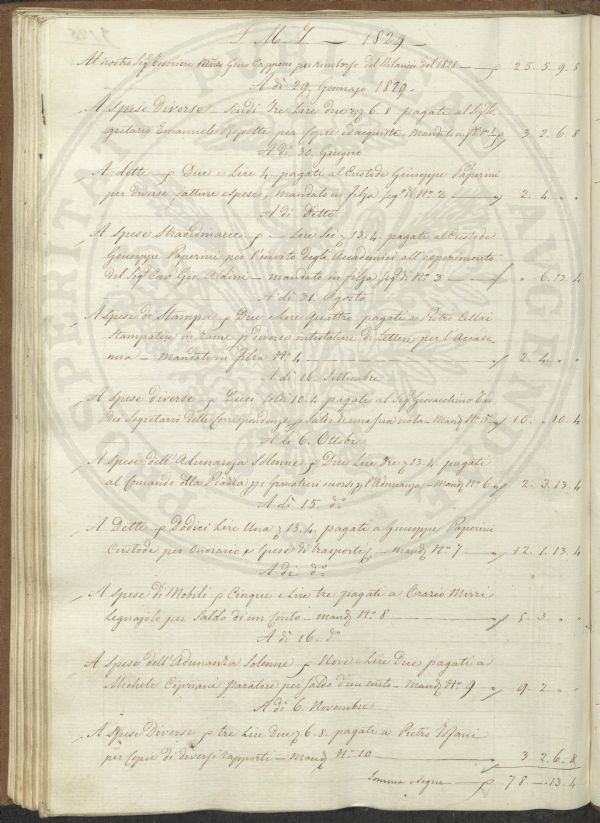 I. M. I. — 1829 —
Al nostro Sig. Tesoriere March. Gino Capponi per rimborso del Bilancio del 1828 — 25. 5. 9. 8
A dì 29. Gennajo 1829.
A Spese Diverse Scudi Tre Lire due 6. 8 pagate al Sig. Se
gretario Emanuele Repetti per Copie ed acquisti, Mandato in fa N° 1 3. 2. 6. 8
A dì 30. Giugno
A dette Due e Lire 4 pagati al Custode Giuseppe Paperini
per diverse fatture e spese, Mandato in filza N° 2 — 2. 4. " "
A dì Detto
A Spese Straordinarie — Lire Sei 13. 4. pagati al Custode
Giuseppe Paperini per l'invito degli Accademici all'esperimento
del Sig. Cav. Gio. Aldini — mandato in filza N° 3 — " 6. 13. 4
A dì 31. Agosto
A Spese di Stampa Due e Lire Quattro pagate a Pietro Cellai
Stampatore in rame diverse intestature di Lettere per l'Accade
mia — Mandato in filza N° 4 — 2. 4. " "
A dì 16. Settembre
A Spese diverse Dieci soldi 10. 4 pagate al Sig. Gioacchino Tad
dei Segretario delle Corrispondenze saldo di una sua nota — Mand. N° 5 — 10. " 10. 4
A dì 6. Ottobre
A Spese dell'Adunanza Solenne Due Lire Tre 13. 4. pagati
al Comando della Piazza i Granatieri l'Adunanza — Mand. N° 6 2. 3. 13. 4
A dì 15. d°
A Dette Dodici Lire Una 13. 4. pagate a Giuseppe Paperini
Custode per Onorario e Spese di trasporto — Mand. N° 7 — 12. 1. 13. 4
A dì d°
A Spese di Mobili Cinque e Lire tre pagati a Orazio Mirri
Legnajolo per Saldo di un Conto — Mand. N° 8 — 5. 3. " "
A dì 16. d°
A Spese dell'Adunanza Solenne Nove e Lire Due pagati a
Michele Cipriani Paratore per saldo d'un conto — Mand. N° 9 9. 2. " "
A dì 6. Novembre
A Spese Diverse tre Lire Due 6. 8. pagate a Pietro
per Copie di diversi rapporti — Mand. N° 10 — 3. 2. 6. 8
Somma e segue — 78. — 13. 4